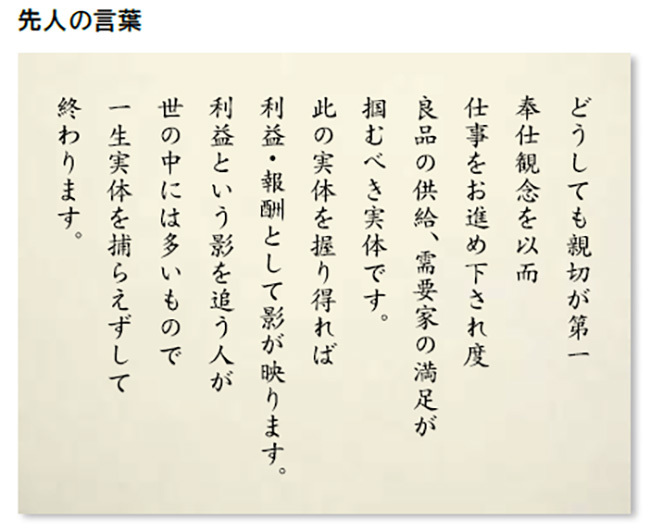 先人の言葉
どうしても親切が第一
奉仕観念を以而
仕事をお進め下され度
良品の供給、需要家の満足が
掴むべき実体です。
此の実体を握り得れば
利益・報酬として影が映ります。
利益という影を追う人が
世の中には多いもので
一生実体を捕らえずして
終わります。